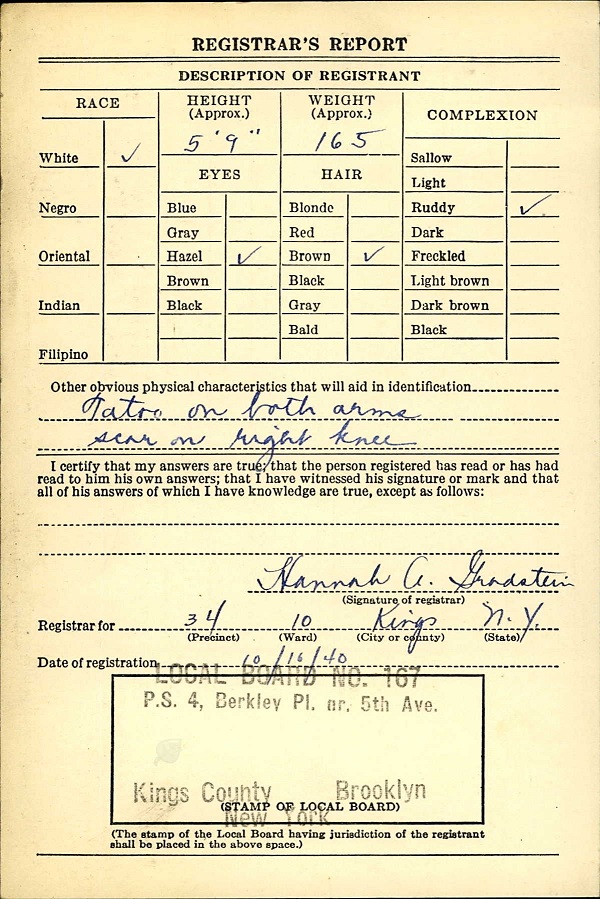 REGISTRAR'S REPORT
DESCRIPTION OF REGISTRANT
RACE
HEIGHT
(Approx.)
WEIGHT
(Approx.)
COMPLEXION
5'9"
165
White ✓
Sallow
EYES
HAIR
Light
Negro
Blue
Blonde
Ruddy ✓
Gray
Red
Dark
Oriental
Hazel ✓
Brown ✓
Freckled
Brown
Black
Light brown
Indian
Black
Gray
Dark brown
Bald
Black
Filipino
Other obvious physical characteristics that will aid in identification
Tatoo on both arms
scar on right knee
I certify that my answers are true; that the person registered has read or has had
read to him his own answers; that I have witnessed his signature or mark and that
all of his answers of which I have knowledge are true, except as follows:
Hannah A. Gradstein
(Signature of registrar)
Registrar for 34 10 Kings N.Y.
(Precinct) (Ward) (City or county) (State)
Date of registration 10/16/40
LOCAL BOARD NO. 167
P.S. 4, Berkley Pl. nr. 5th Ave.
Kings County Brooklyn
(STAMP OF LOCAL BOARD)
New York
(The stamp of the Local Board having jurisdiction of the registrant
shall be placed in the above space.)